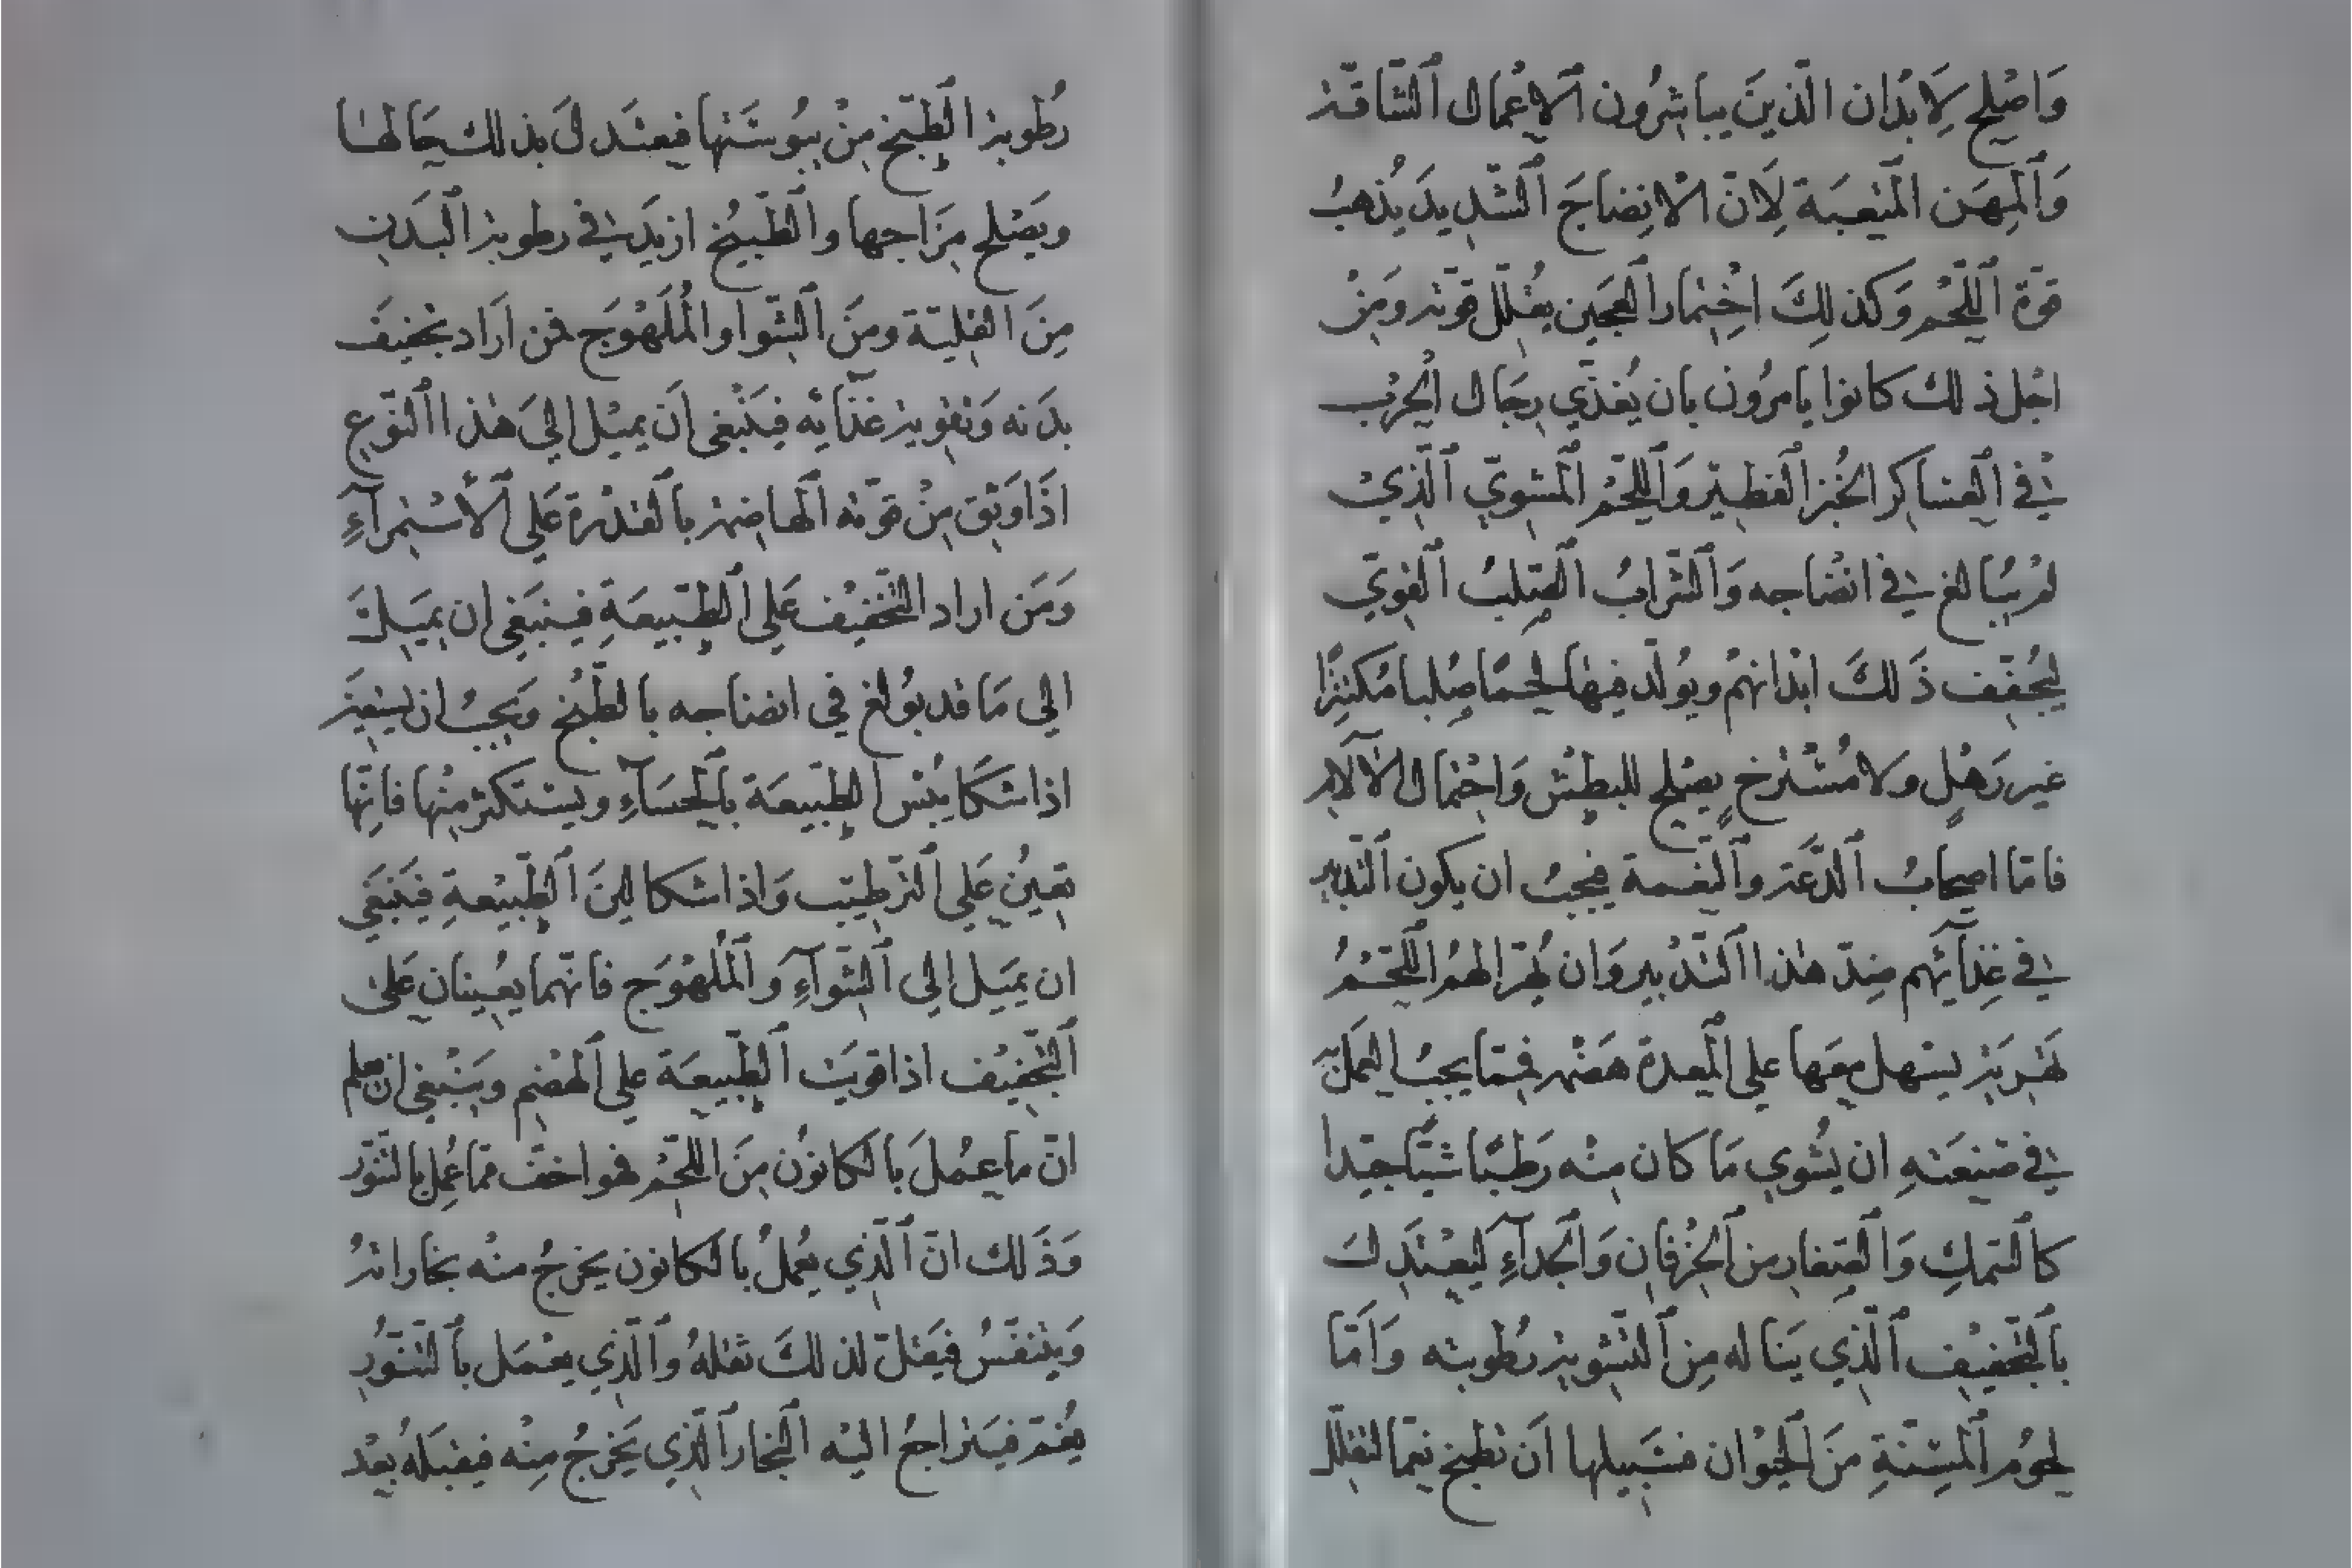 وَاصْلح لِابْدَان الّذينَ يباشِرُون ٱلاعْمال ٱلشّاقّة
وَٱلمِهَن المتْعِبَة لِاَنّ الانِضاجَ ٱلشّدِيدَ يُذهبُ
قوّة ٱللّحْم وَكذلِكَ اخْتِمار العَجين يقلّل قوّته ومِنْ
اجْل ذلك كانوا يامرُون بان يُغذّي رِجَال الحْربْ
في ٱلعسَاكِر الخُبز ٱلفطِيْر وَٱللحْم ٱلمشوِيّ ٱلّذِيْ
لمْ يُبَالغ في انضْاجه وَٱلشّرابُ ٱلصّلبُ ٱلقوِيّ
ليُجفّف ذَلكَ ابْدانهمْ ويُولّد فيهْا لحْمًا صِلبا مُكتنِزًا
غير رَهْلٍ ولا مُسْترخٍ يصْلح للبطْش وَاحْتمال الآلام
فامّا اصحابُ ٱلدّعَة وٱلنّعْمة فيجبُ ان يكون ٱلتّدبير
في غِذآئهم ضِدّ هٰذا ٱلتّدْبير وَان يُهرّا لهمُ اللّحْمُ
تَهْرِيَة يسْهل معَها على ٱلمعدة هَضْمه فممّا يجبُ العَمل به
في صَنعَتهِ ان يُشْوي مَا كان منْه رَطبًا شيًّا جيّدا
كالسّمكِ وَالصّغارِ من ٱلخِرْفانِ وَٱلجدآءِ ليعْتَدِل
بٱلتّجفيْف ٱلّذِي يَناله مِن ٱلتّشوِية رُطوبته وَاَمّا
لحوُم ٱلمسِنّةِ مَن ٱلحيْوَان فسَبيلها اَن تطبخ نيّما لتقلّل
رُطوبة ٱلطّبْخ مِنْ يبُوسَتها فيعتَدلَ بذلك حَالها
ويَصْلح مِزَاجها والطّبيْخ ازيَد في رطوبة ٱلبَدَن
مِنَ القليّة ومنَ ٱلشّوا والمُلَهْوَج فمن اَرَاد تجْفيفَ
بدَنه وَتقوية غذَائه فيَنْبغي اَن يميْل الي هَٰذا ٱلنّوَع
اذَا وَثِق مِنْ قوّته ٱلهاضِمة بٱلقدْرة عَلي ٱلأسْتمرآءِ
وَمَن اراد التّخفيْف عَلي ٱلطّبيعَةِ فينبَغي ان يميَل
الي مَا قد بُولغ في انضاجه بالطّبْخ وَيجبُ ان يسْتعين
اذا شكا يبْس الطّبيعَة بٱلحسَآءِ ويسْتكثر منْها فانّها
تعينُ عَلي ٱلترطيب وَاذا شكا لينَ ٱلطّبيْعةِ فيَنبَغي
ان يميَل الى ٱلشّوآءِ وَٱلمُلهْوَج فانّهما يعُينان عَلى
ٱلتّجفيْف اذا قويَت ٱلطّبيعَة علي ٱلهضْم ويَنْبغي ان يعلم
انّ ما عمُلَ بالكانوُن مِنَ اللّحْم فهو اخفّ ممّا عُمل بالتنّور
وَذَلك انّ ٱلّذِي يعْمَلُ بالكانون يخرجُ منْه بخار اثر
وَيتنفّسُ فيَقلّ لذلكَ ثقلهُ وٱلّذِي يعْمَل بٱلتنّور
يغْمّ فيَتراجعُ اليْه ٱلبخار ٱلّذِي يَخرجُ مِنْه فيقبَلهُ بعْد